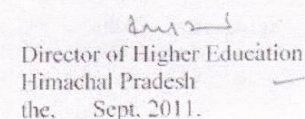 Director of Higher Education
Himachal Pradesh
the, Sept. 2011.